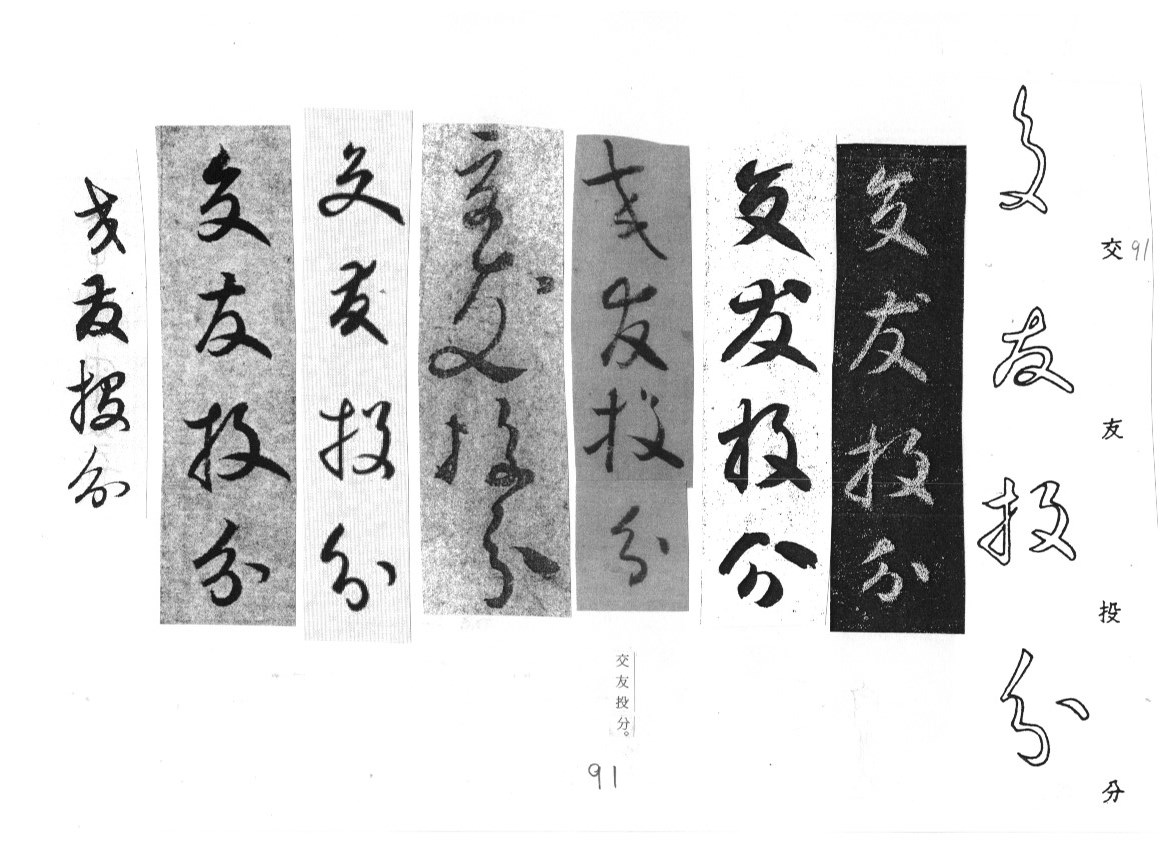 交友投分
91
交友投分
交友投分
交友投分
交友投分
交友投分
交友投分
交友投分
交友投分
交友投分。
91